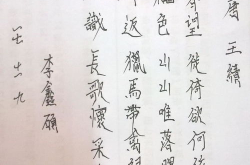 唐 王績
望 徙倚欲何
色 山山唯落
返 獵馬帶禽
識 長歌懷采
李鑫碩